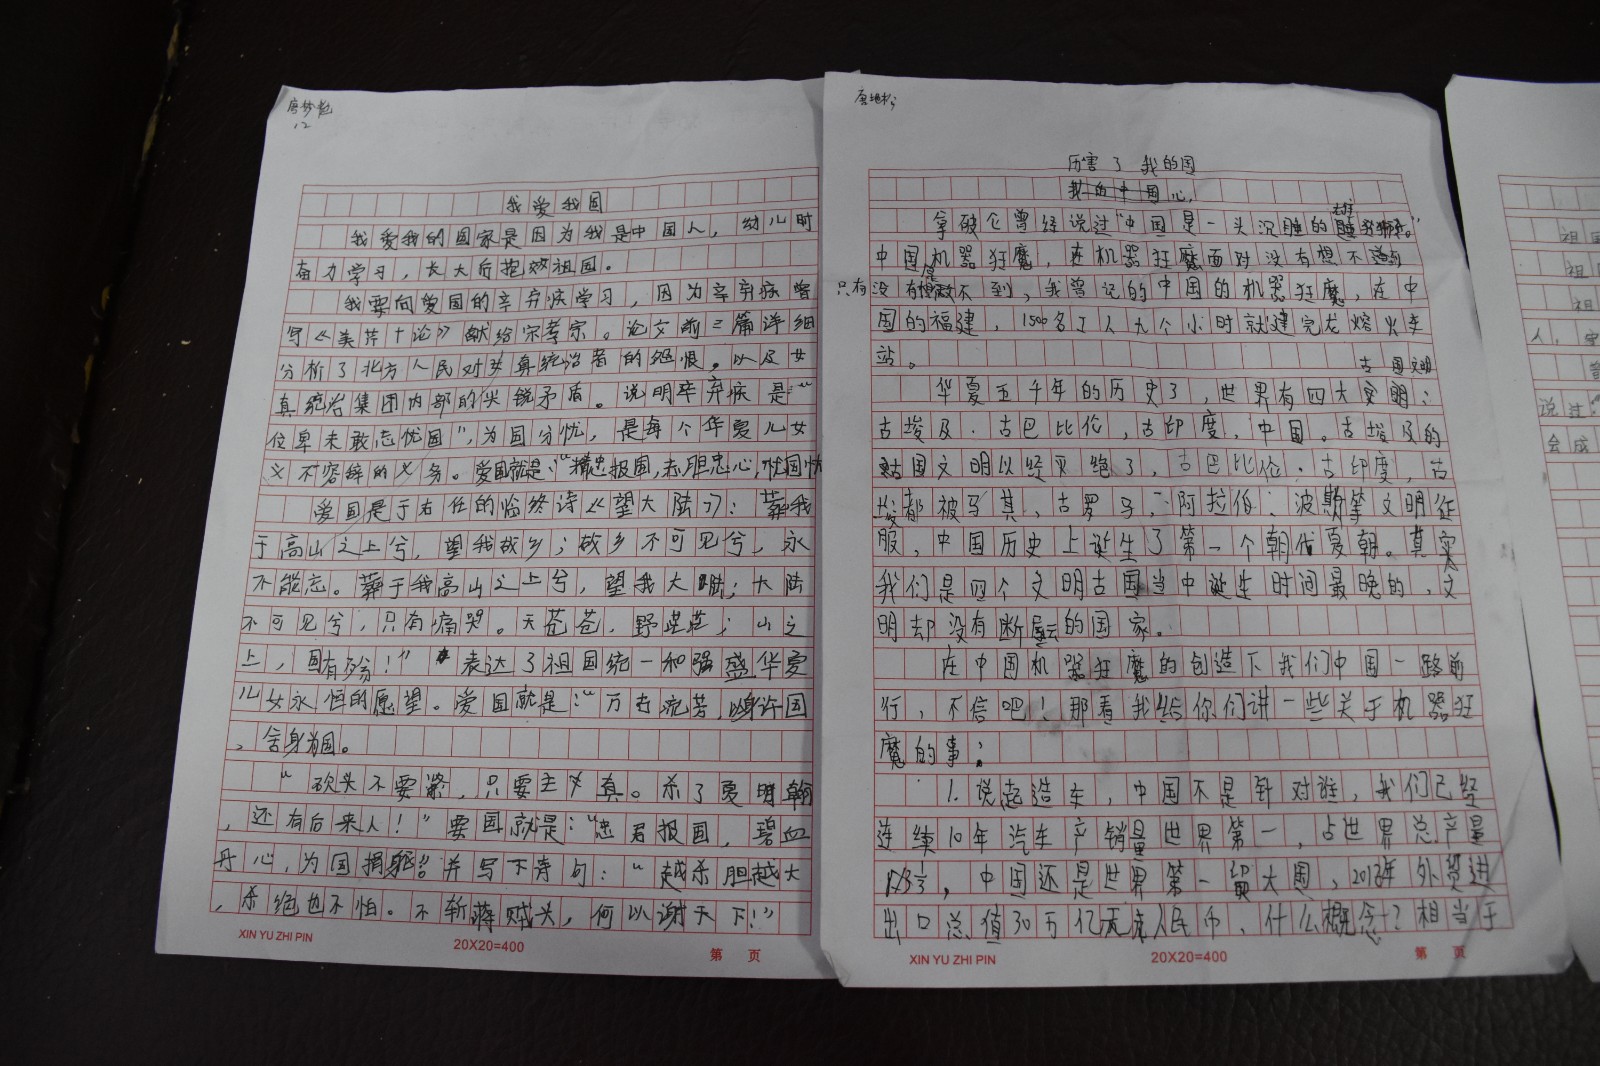 12
我爱我国
我爱我的国家是因为我是中国人，幼儿时
奋力学习，长大后抱效祖国。
我要向爱国的辛弃疾学习，因为辛弃疾曾
写《美芹十论》献给宋孝宗。论文前三篇详细
分析了北方人民对女真统治者的怨恨。以及女
真统治集团内部的尖锐矛盾。说明辛弃疾是“
位卑未敢忘忧国”，为国分忧，是每个华夏儿女
义不容辞的义务。爱国就是：“精忠报国，赤胆忠心，忧国忧
爱国是于右任的临终诗《望大陆》：葬我
于高山之上兮，望我故乡；故乡不可见兮，永
不能忘。葬于我高山之上兮，望我大陆；大陆
不可见兮，只有痛哭。天苍苍，野茫茫；山之
上，国有殇！”表达了祖国统一和强盛华夏
儿女永恒的愿望。爱国就是：“万古流芳，以身许国
，舍身为国。
“砍头不要紧，只要主义真。杀了夏明翰
，还有后来人！”要国就是：“忠君报国，碧血
丹心，为国捐躯”并写下寄句：“越杀胆越大
，杀绝也不怕。不斩蒋贼头，何以谢天下！”
XIN YU ZHI PIN 20X20=400 第 页
历害了我的国
我的中国心
拿破仑曾经说过“中国是一头沉睡的
中国机器狂魔，在机器狂魔面对没有想不到
只有没有做不到，我曾记的中国的机器狂魔，在中
国的福建，1500名工人九个小时就建完龙熔火车
站。
古国文明
华夏五千年的历史了，世界有四大文明：
古埃及．古巴比伦，古印度，中国。古埃及的
古国文明以经灭绝了，古巴比伦．古印度，古
埃都被马其，古罗马，阿拉伯．波斯等文明征
服，中国历史上诞生了第一个朝代夏朝。其实
我们是四个文明古国当中诞生时间最晚的，文
明却没有断层的国家。
在中国机器狂魔的创造下我们中国一路前
行，不信吧！那看我给你们讲一些关于机器狂
魔的事：
1.说起造车，中国不是针对谁，我们已经
连续10年汽车产销量世界第一，占世界总产量
中国还是世界第一贸大国，年外贸进
出口总值30万亿元人民币、什么概念？相当于
XIN YU ZHI PIN 20X20=400 第 页
祖国
祖
祖
人，
说过：
会成